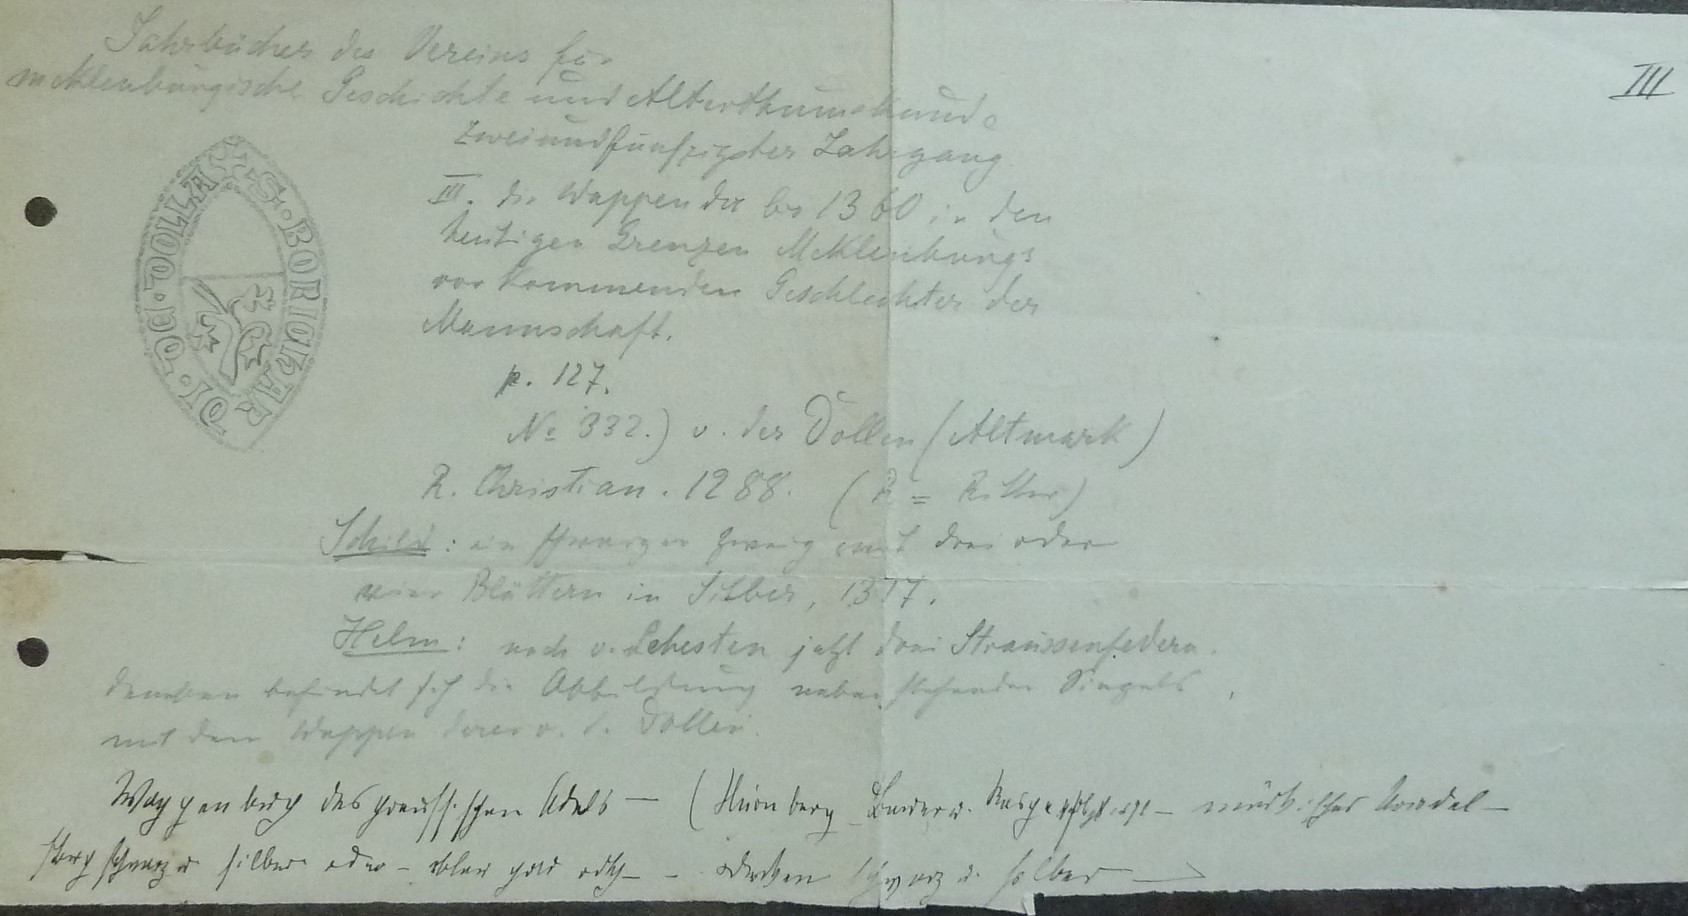 III
Jahrbücher des Vereins für
meklenburgische Geschichte und Alterthumskunde
Zweiundfünfzigster Jahrgang
III. die Wappen der bis 1360 in den
heutigen Grenzen Meklenburgs
vorkommenden Geschlechter der
Mannschaft.
p. 127.
No 332.) v. der Döllen (Altmark)
R. Christian. 1288. (R = Ritter)
Schild: ein schwarzer Zweig mit drei oder
vier Blättern in Silber, 1377.
Helm: nach v. Lehesten jetzt drei Straussenfedern.
daneben befindet sich die Abbildung nebenstehenden Siegels,
mit dem Wappen derer v. d. Dollen.
Wappenbuch des preussischen Adels — (Nürnberg Bauer u. Raspe — märkischer Uradel —
schwarz u. silber oder — — — schwarz u. silber —
S · BORICHAR DI · DE · DOLLA